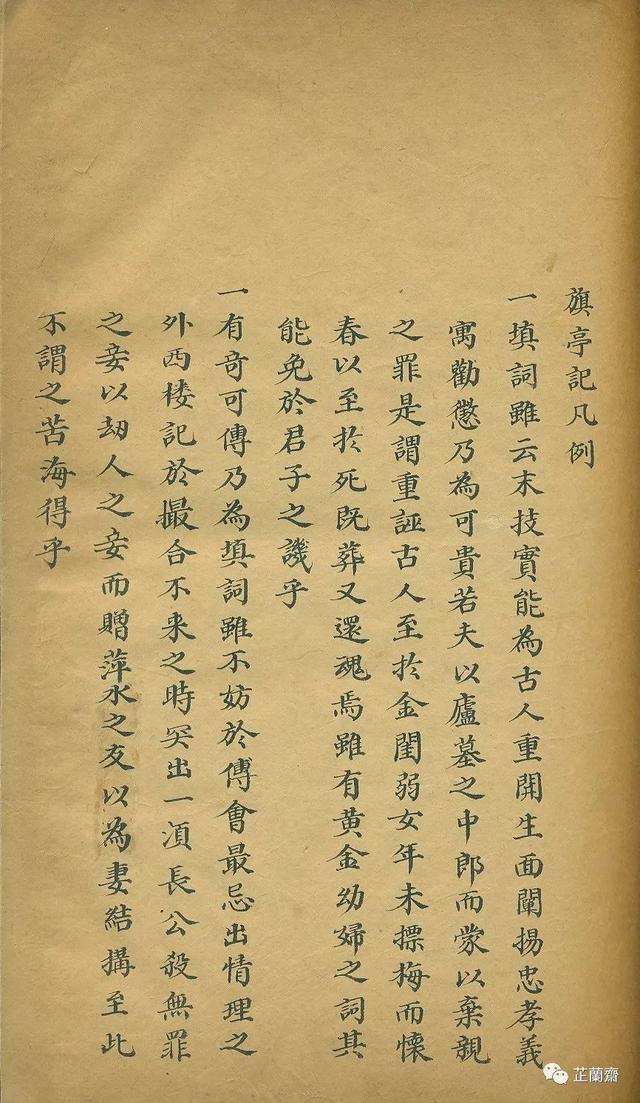 旗亭記凡例
一填詞雖云末技實能為古人重開生面闡揚忠孝義
寓勸懲乃為可貴若夫以廬墓之中郎而蒙以棄親
之罪是謂重誣古人至於金閨弱女年未摽梅而懷
春以至於死既葬又還魂焉雖有黃金幼婦之詞其
能免於君子之譏乎
一有奇可傳乃為填詞雖不妨於傅會最忌出情理之
外西楼記於撮合不来之時突出一湏長公殺無罪
之妾以劫人之妾而贈萍水之友以為妻結搆至此
不謂之苦海得乎
芷蘭齋